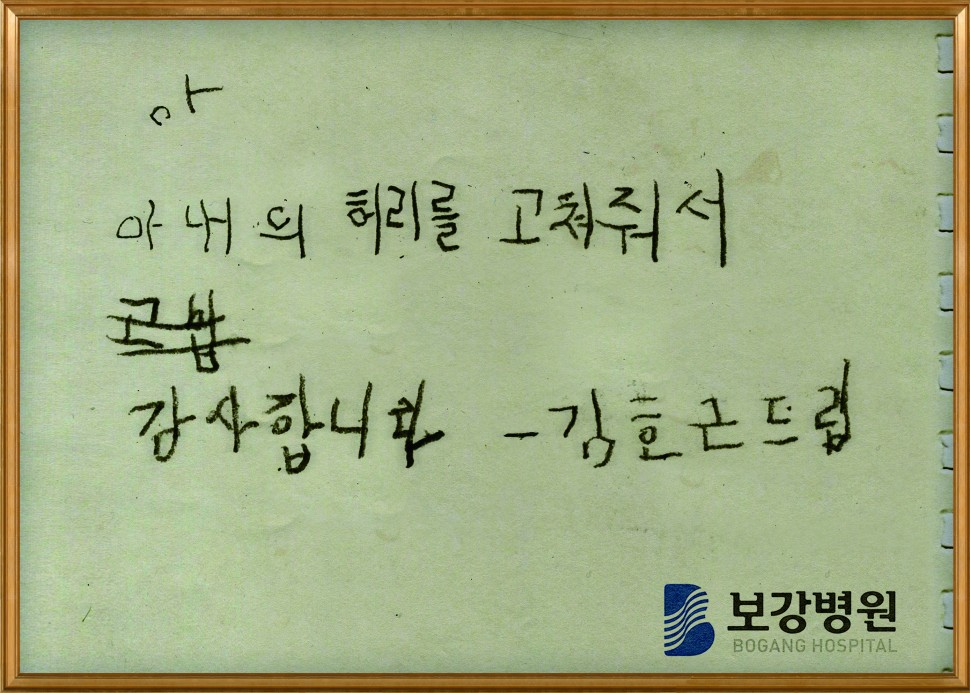 아
아내의 허리를 고쳐줘서
고맙
감사합니다 - 김흔근드림
보강병원
BOGANG HOSPITAL